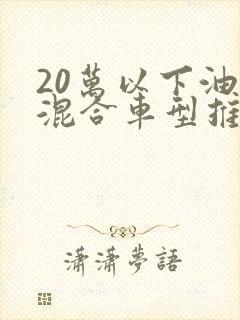 20萬以下油
混合車型推
瀟瀟夢語